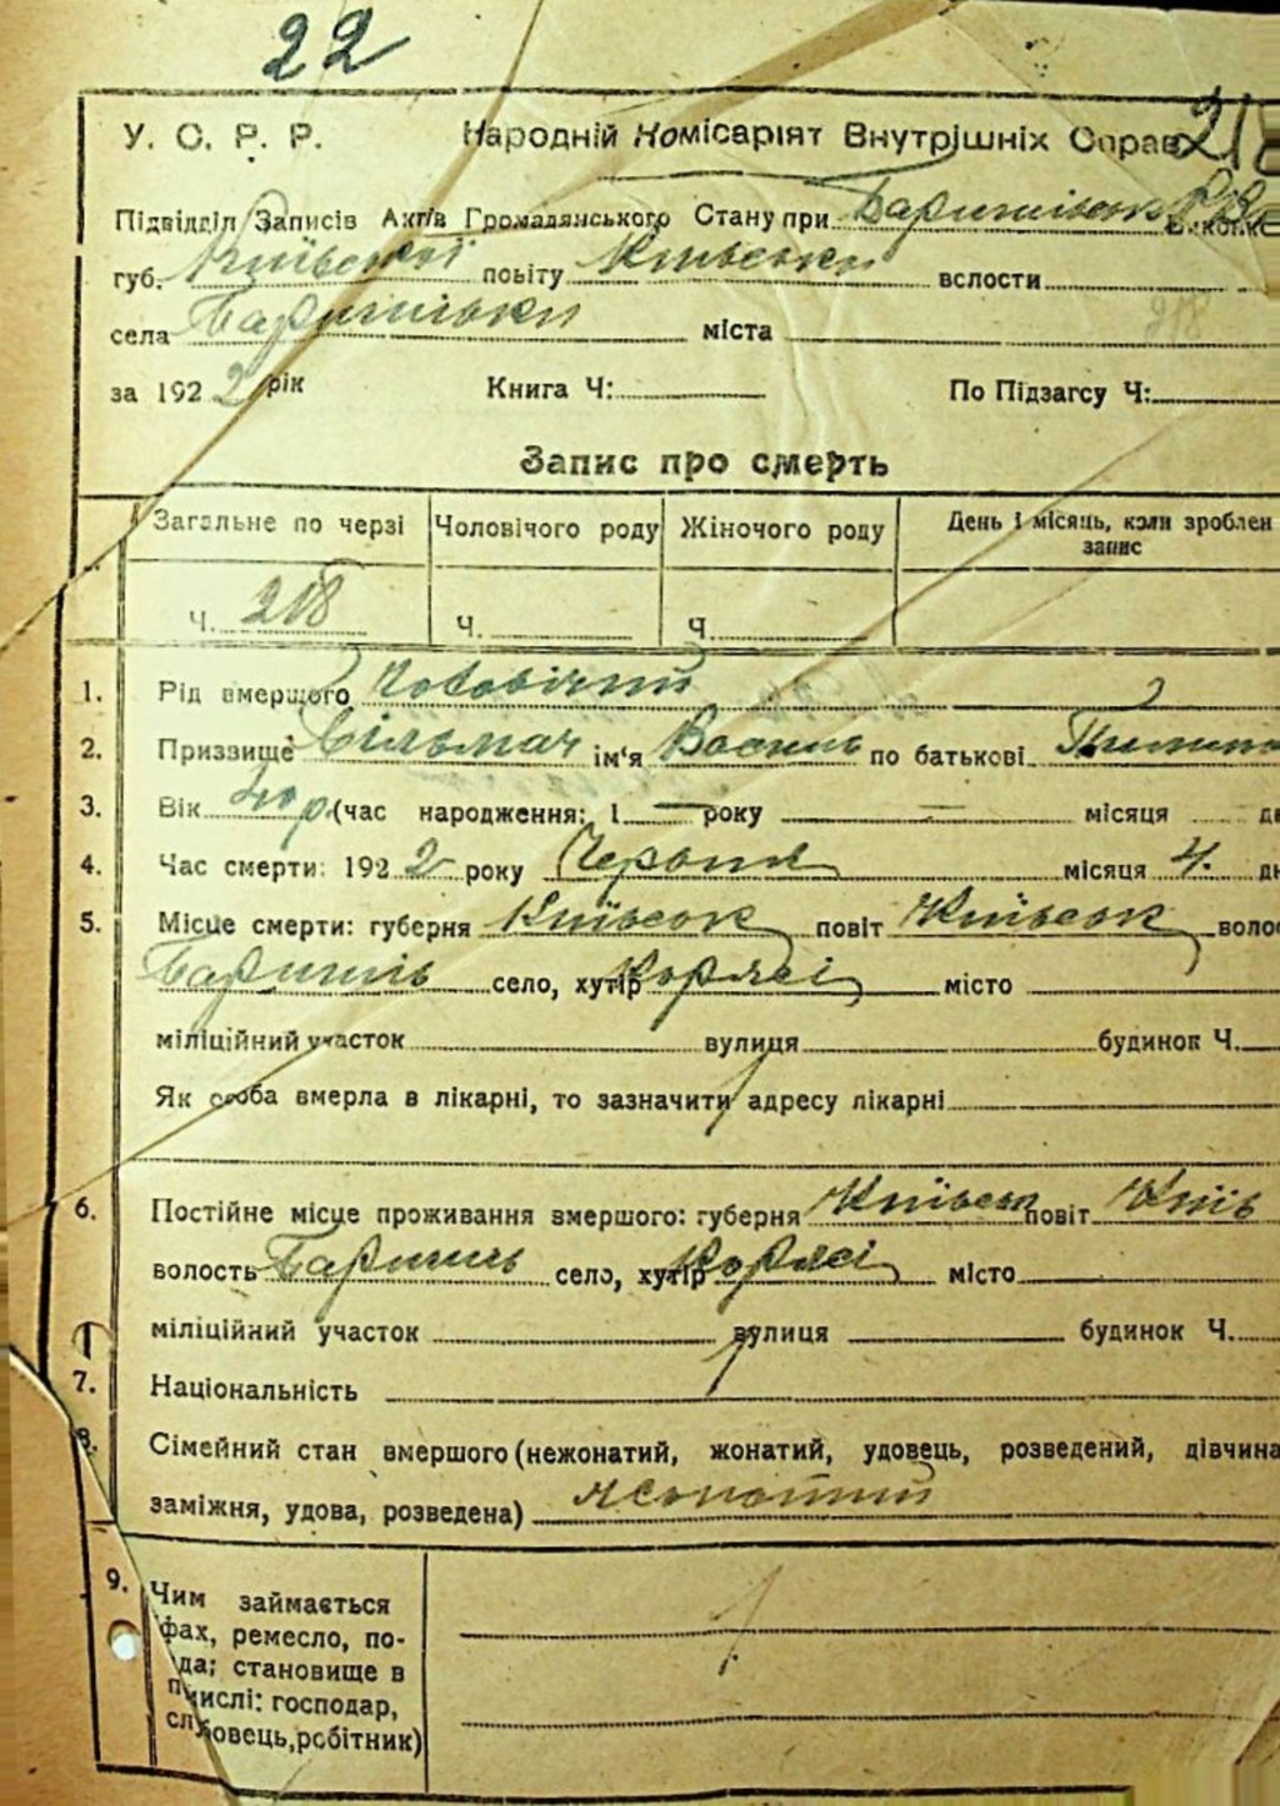 22
У. С. Р. Р. Народній Комісаріят Внутрішніх Справ 218
Підвідділ Записів Актів Громадянського Стану при
губ. Київської повіту Київськи вслости
села міста
за 1922 рік Книга Ч: По Підзагсу Ч:
218
Запис про смерть
Загальне по черзі Чоловічого роду Жіночого роду День і місяць, коли зроблен запис
Ч. 218 Ч. Ч.
1. Рід вмершого Чоловічий
2. Призвище ім'я Василь по батькові
3. Вік р. (час народження: 1 — року — місяця
4. Час смерти: 1922 року Червня місяця 4.
5. Місце смерти: губерня Київськ повіт Київськ
село, хутір місто
міліційний участок вулиця будинок Ч.
Як особа вмерла в лікарні, то зазначити адресу лікарні
6. Постійне місце проживання вмершого: губерня Київськ повіт Київ
волость село, хутір місто
міліційний участок вулиця будинок Ч.
7. Національність
8. Сімейний стан вмершого (нежонатий, жонатий, удовець, розведений, дівчина
заміжня, удова, розведена) жонатий
9. Чим займається
фах, ремесло, по-
да; становище в
числі: господар,
робітник)